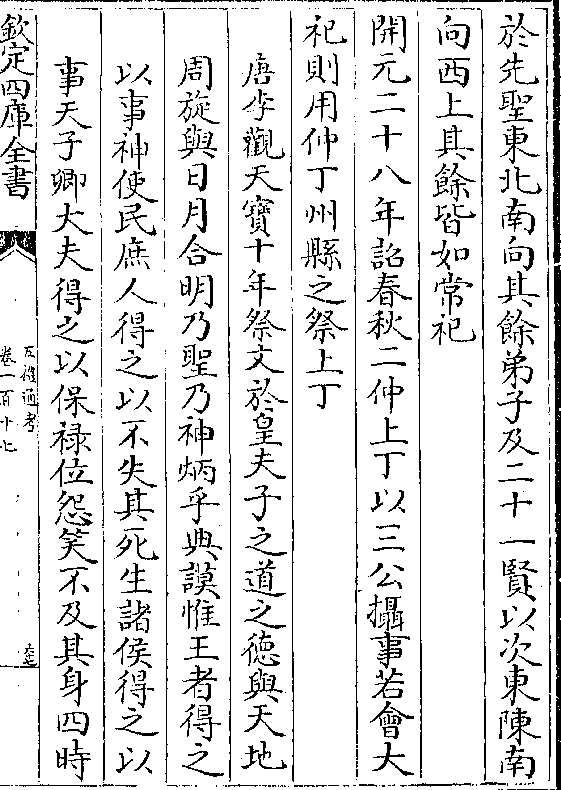 於先聖東北南向其餘弟子及二十一賢以次東陳南
向西上其餘皆如常祀
開元二十八年詔春秋二仲上丁以三公攝事若會大
祀則用仲丁州縣之祭上丁
唐李觀天寶十年祭文於皇夫子之道之德與天地
周旋與日月合明乃聖乃神炳乎典謨惟王者得之
以事神使民庶人得之以不失其死生諸侯得之以
事天子卿大夫得之以保祿位怨笑不及其身四時
欽定四庫全書
五禮通考
卷一百十七